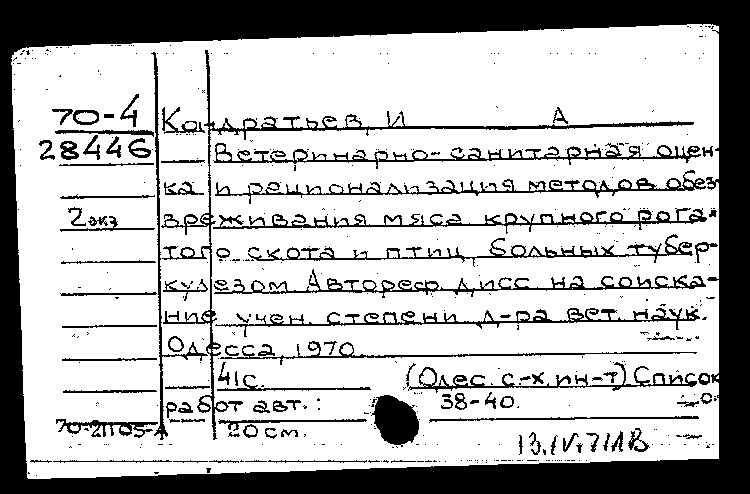 70-4 Кондратьев, И А
28446 Ветеринарно-санитарная оцен-
ка и рационализация методов обез-
2 экз вреживания мяса крупного рога-
того скота и птиц, больных тубер-
кулезом Автореф. дисс на соиска-
ние учен. степени д-ра вет. наук.
Одесса, 1970.
41с. (Одес. с-х. ин-т) Список
работ авт.: 38-40.
70-21105-А 20 см.
13.IV.71